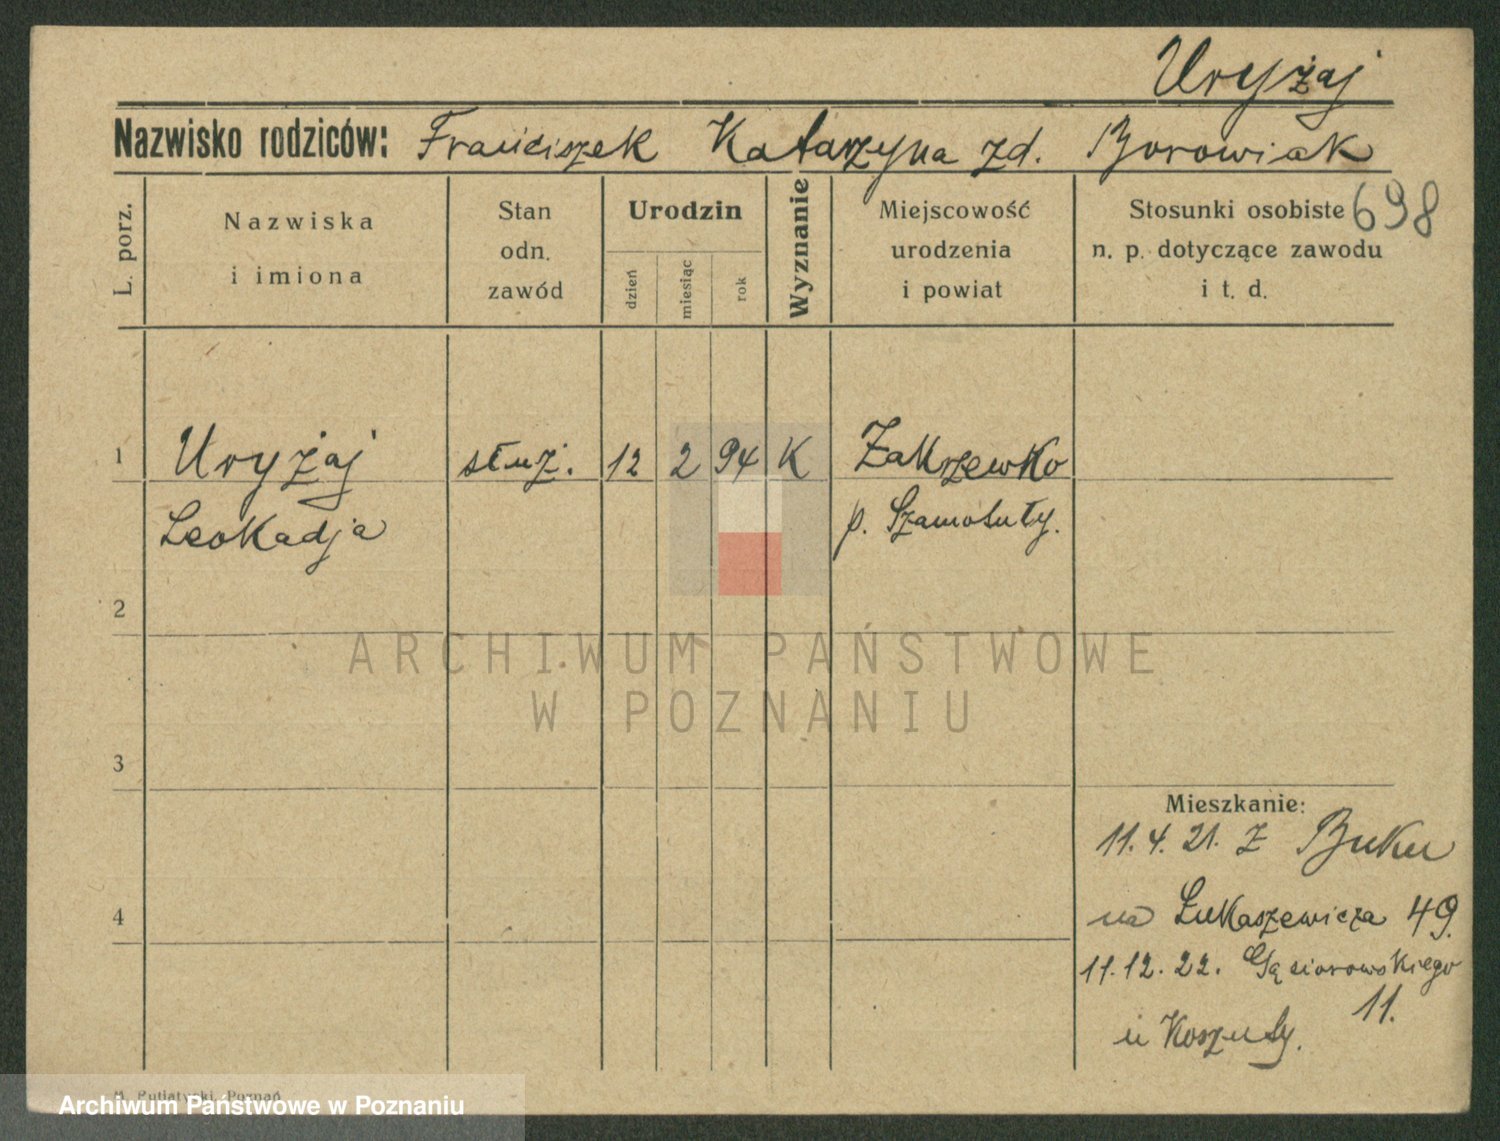 Uryżaj
Nazwisko rodziców: Franciszek Katarzyna zd. Borowiak
698
L. porz.
Nazwiska
i imiona
Stan
odn.
zawód
Urodzin
dzień
miesiąc
rok
Wyznanie
Miejscowość
urodzenia
i powiat
Stosunki osobiste
n. p. dotyczące zawodu
i t. d.
1 Uryżaj służ. 12 2 94 K Zakrzewko
Leokadja p. Szamotuły.
2
ARCHIWUM PAŃSTWOWE
W POZNANIU
3
Mieszkanie:
11.4.21. z Buku
4
na Łukaszewicza 49.
11.12.22. Gąsiorowskiego
11.
u Koszuty.
M. Putiatycki, Poznań
Archiwum Państwowe w Poznaniu